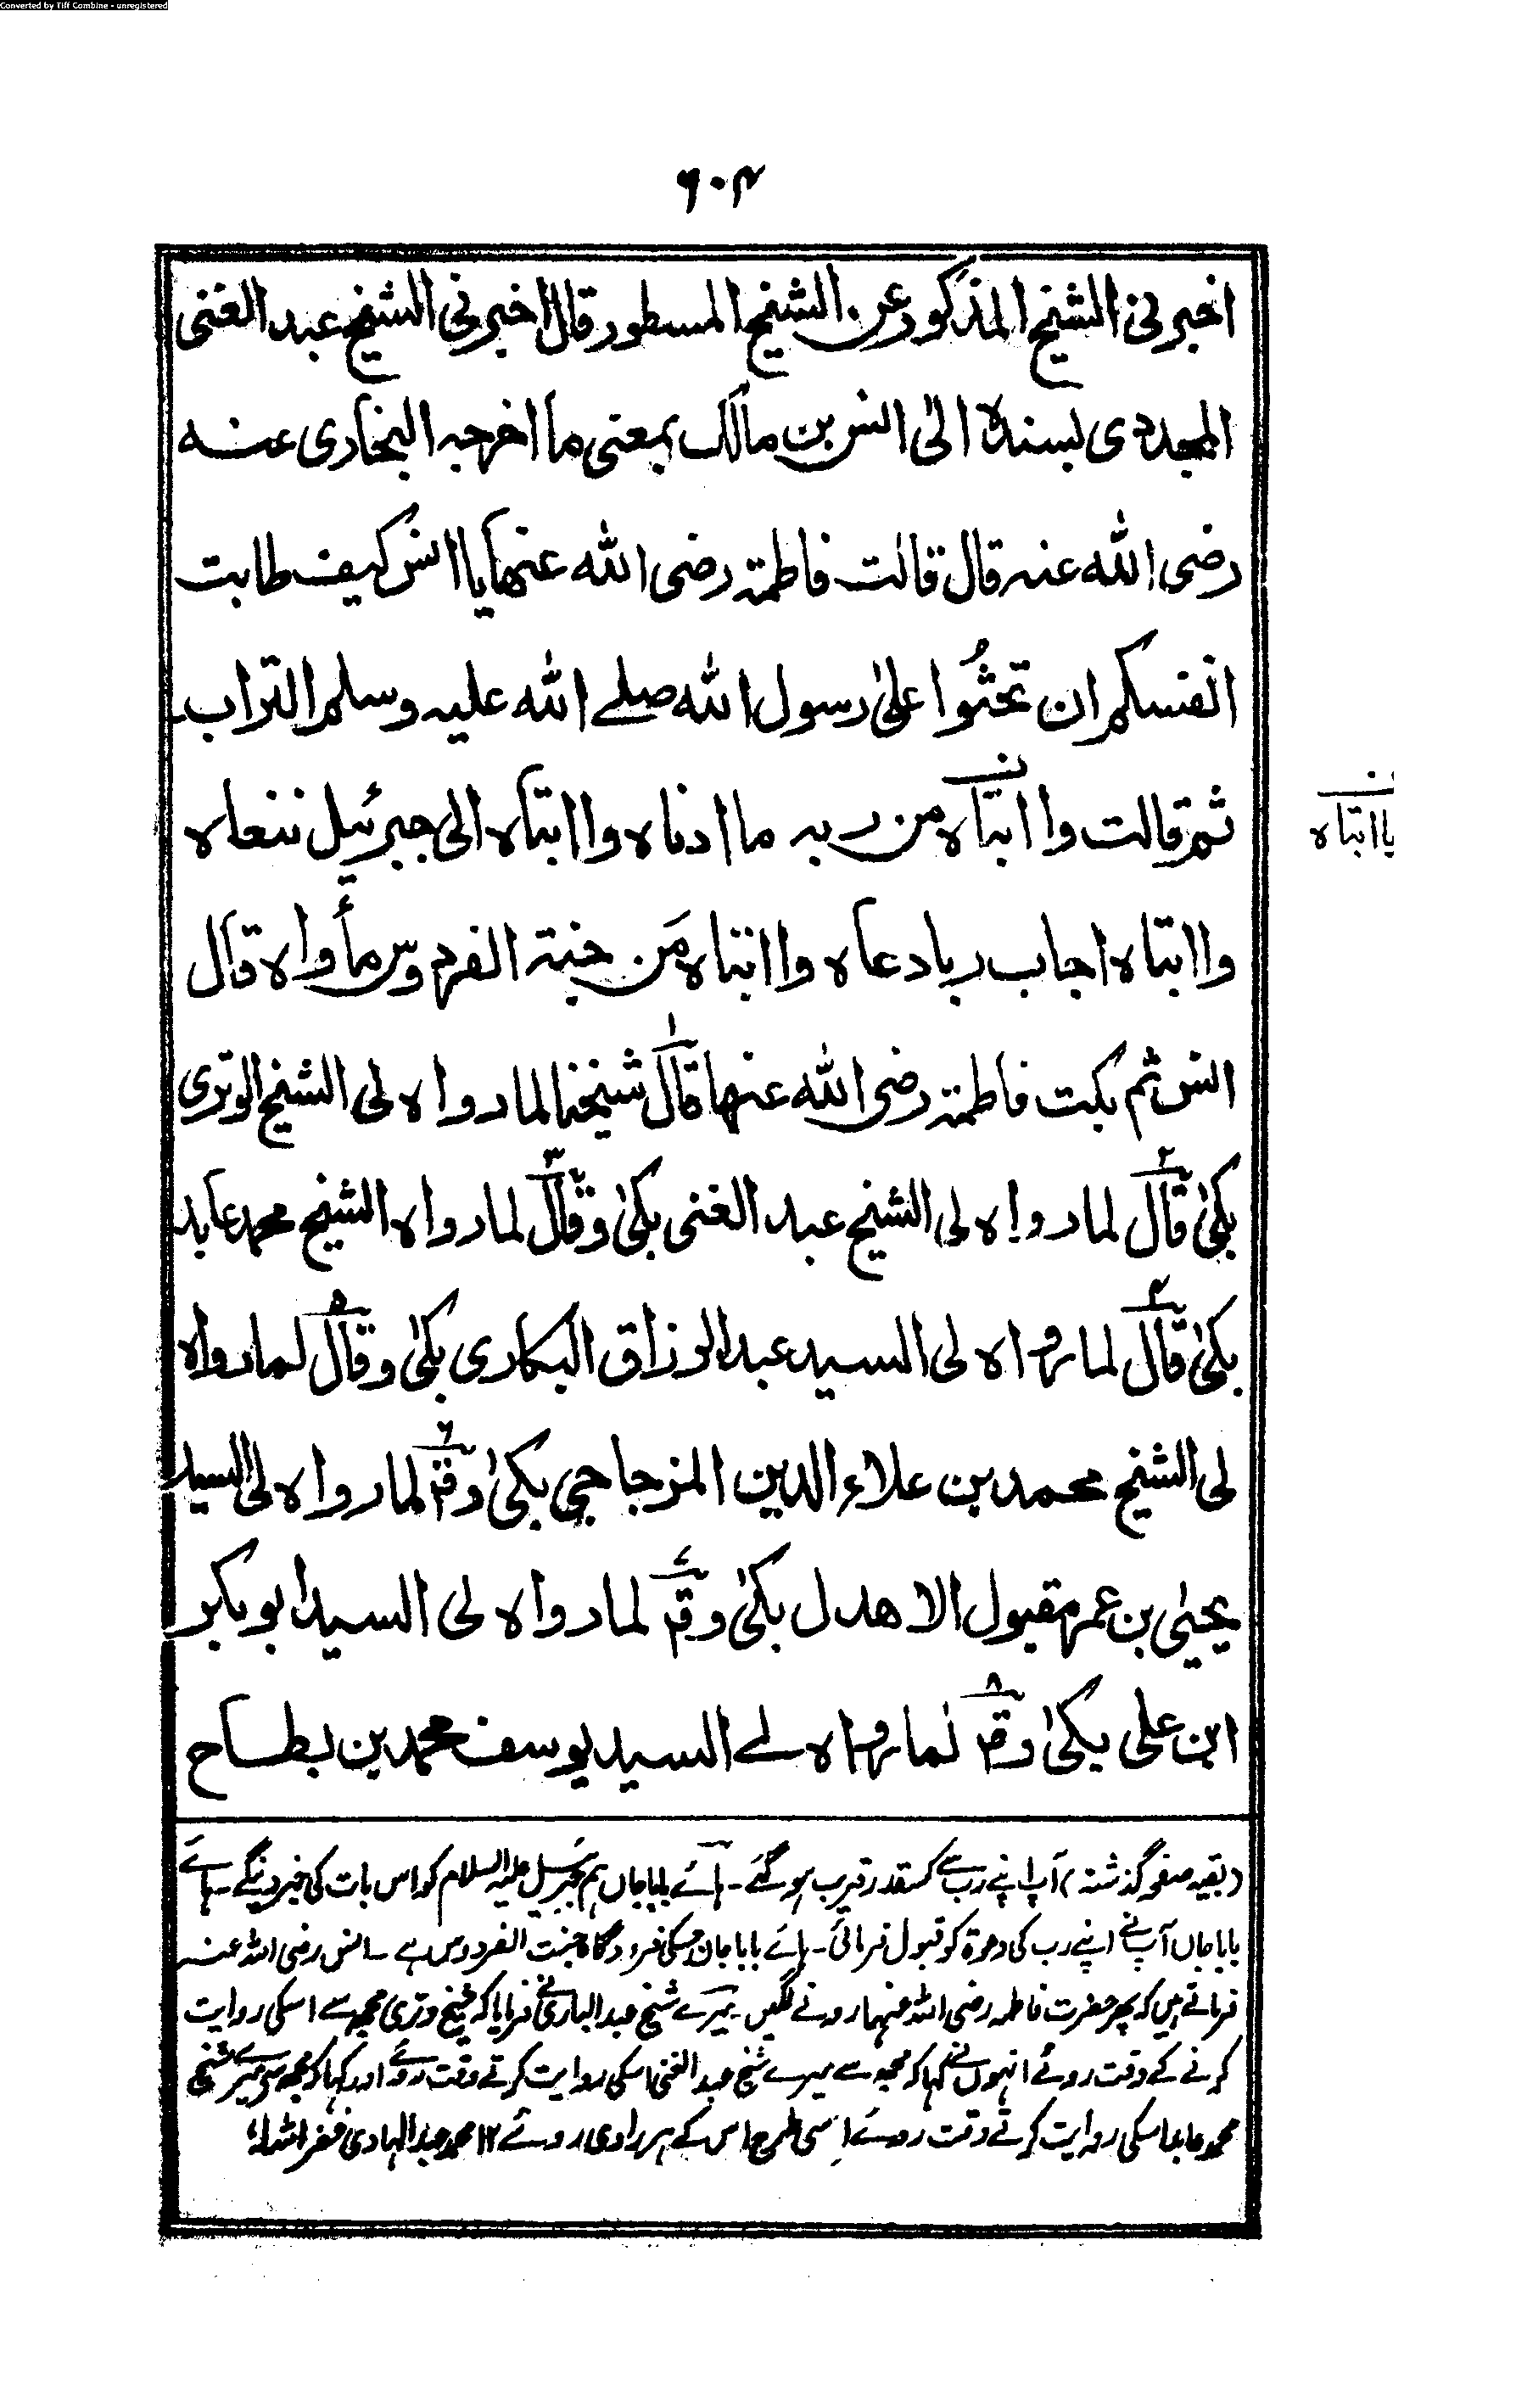 Converted by Tiff Combine - unregistered
۶۰۴
اخبرنی الشیخ المذکور عن الشیخ المسطور قال اخبرنی الشیخ عبد الغنی
المجددی بسندہ الی انس بن مالک بمعنی ما اخرجہ البخاری عنہ
رضی اللہ عنہ قال قالت فاطمۃ رضی اللہ عنھا یا انس کیف طابت
انفسکم ان تحثُوا علی رسول اللہ صلے اللہ علیہ وسلم التراب
ثم قالت وا ابتاہ من ربہ ما ادناہ وا ابتاہ الی جبرئیل ننعاہ
یا ابتاہ
وا ابتاہ اجاب ربا دعاہ وا ابتاہ مَن جنۃ الفردوس مأواہ قال
انس ثم بکت فاطمۃ رضی اللہ عنھا قال شیخنا لما رواہ لی الشیخ الوتری
بکیٰ قال لما رواہ لی الشیخ عبد الغنی بکیٰ وقال لما رواہ الشیخ محمد عابد
بکیٰ قال لما رواہ لی السید عبد الرزاق البکاری بکیٰ وقال لما رواہ
لی الشیخ محمد بن علاء الدین المزجاجی بکیٰ وقؔ لما رواہ لی السید
یحییٰ بن عمر مقبول الاھدل بکیٰ وقؔ لما رواہ لی السید ابو بکر
ابن علی بکیٰ وقؔ لما رواہ لے السید یوسف محمد بن بطاح
(بقیہ صفحہ گذشتہ) آپ اپنے رب سے کسقدر قریب ہو گئے۔ ہائے باباجاں ہم جبرئیل علیہ السلام کو اس بات کی خبر دینگے۔ ہائے
باباجاں آپ نے اپنے رب کی دعوۃ کو قبول فرمائی۔ ہائے باباجان جسکی فرودگاہ جنت الفردوس ہے۔ انس رضی اللہ عنہ
فرماتے ہیں کہ پھر حضرت فاطمہ رضی اللہ عنہما رونے لگیں۔ میرے شیخ عبد الباری نے فرمایا کہ شیخ وتری مجھ سے اسکی روایت
کرنے کے وقت روئے انہوں نے کہا کہ مجھ سے میرے شیخ عبد الغنی اسکی روایت کرتے وقت روئے اور کہا کہ مجھ سے میرے شیخ
محمد عابد اسکی روایت کرتے وقت روئے اسی طرح اس کے ہر راوی روئے ۱۲ محمد عبد الہادی غفر اللہ لہ